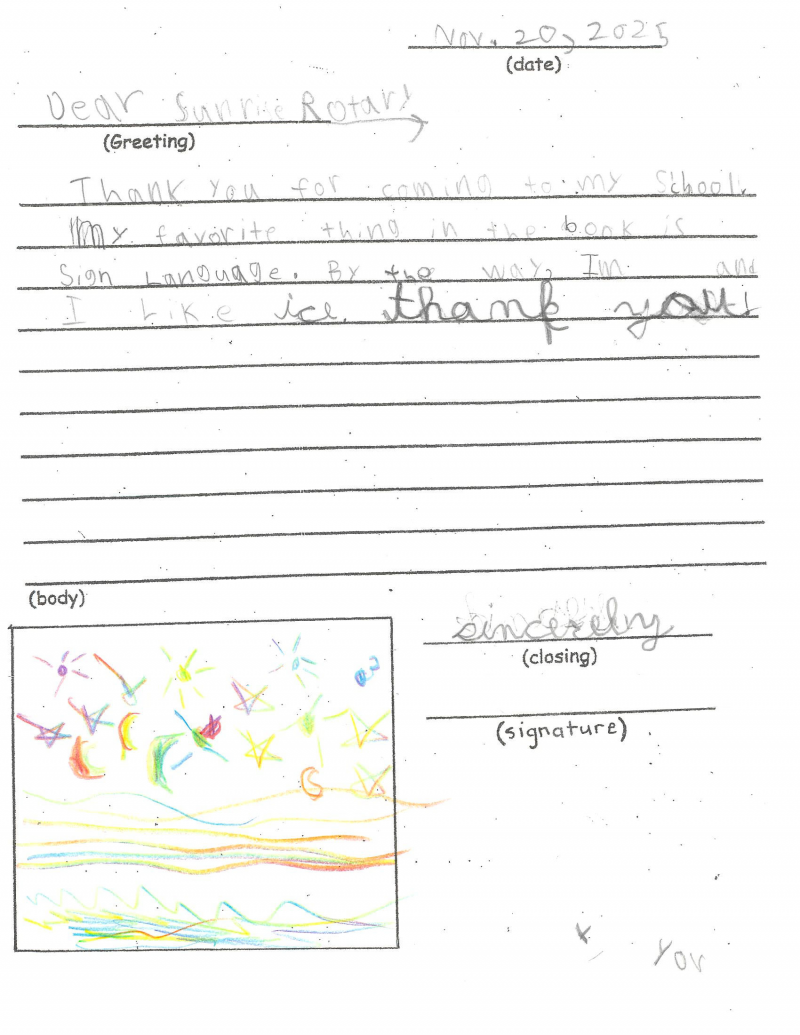 Nov. 20, 2025
(date)
Dear Sunrise Rotary
(Greeting)
Thank you for coming to my School.
My favorite thing in the book is
Sign Language. By the way, Im and
I like ice. thank you!
(body)
sincerelny
(closing)
(signature)
You